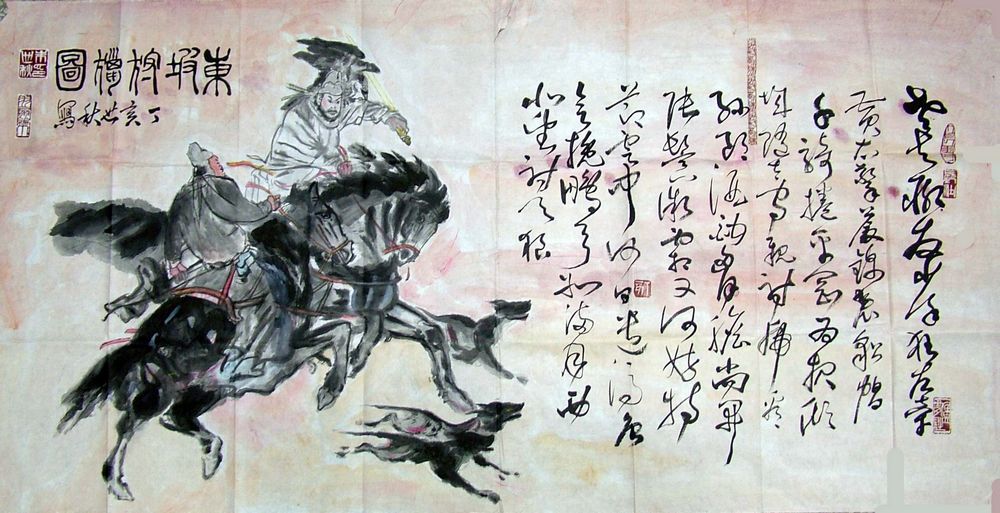 老夫聊發少年狂左牽
黃右擎蒼錦裘貂帽
千騎捲平岡為報傾
城隨太守親射虎看
孫郎酒酣胸膽尚開
張鬢微霜又何妨持
節雲中何日遣馮唐
會挽鵰弓如滿月西
北望射天狼
東坡狩獵圖
丁亥世秋寫